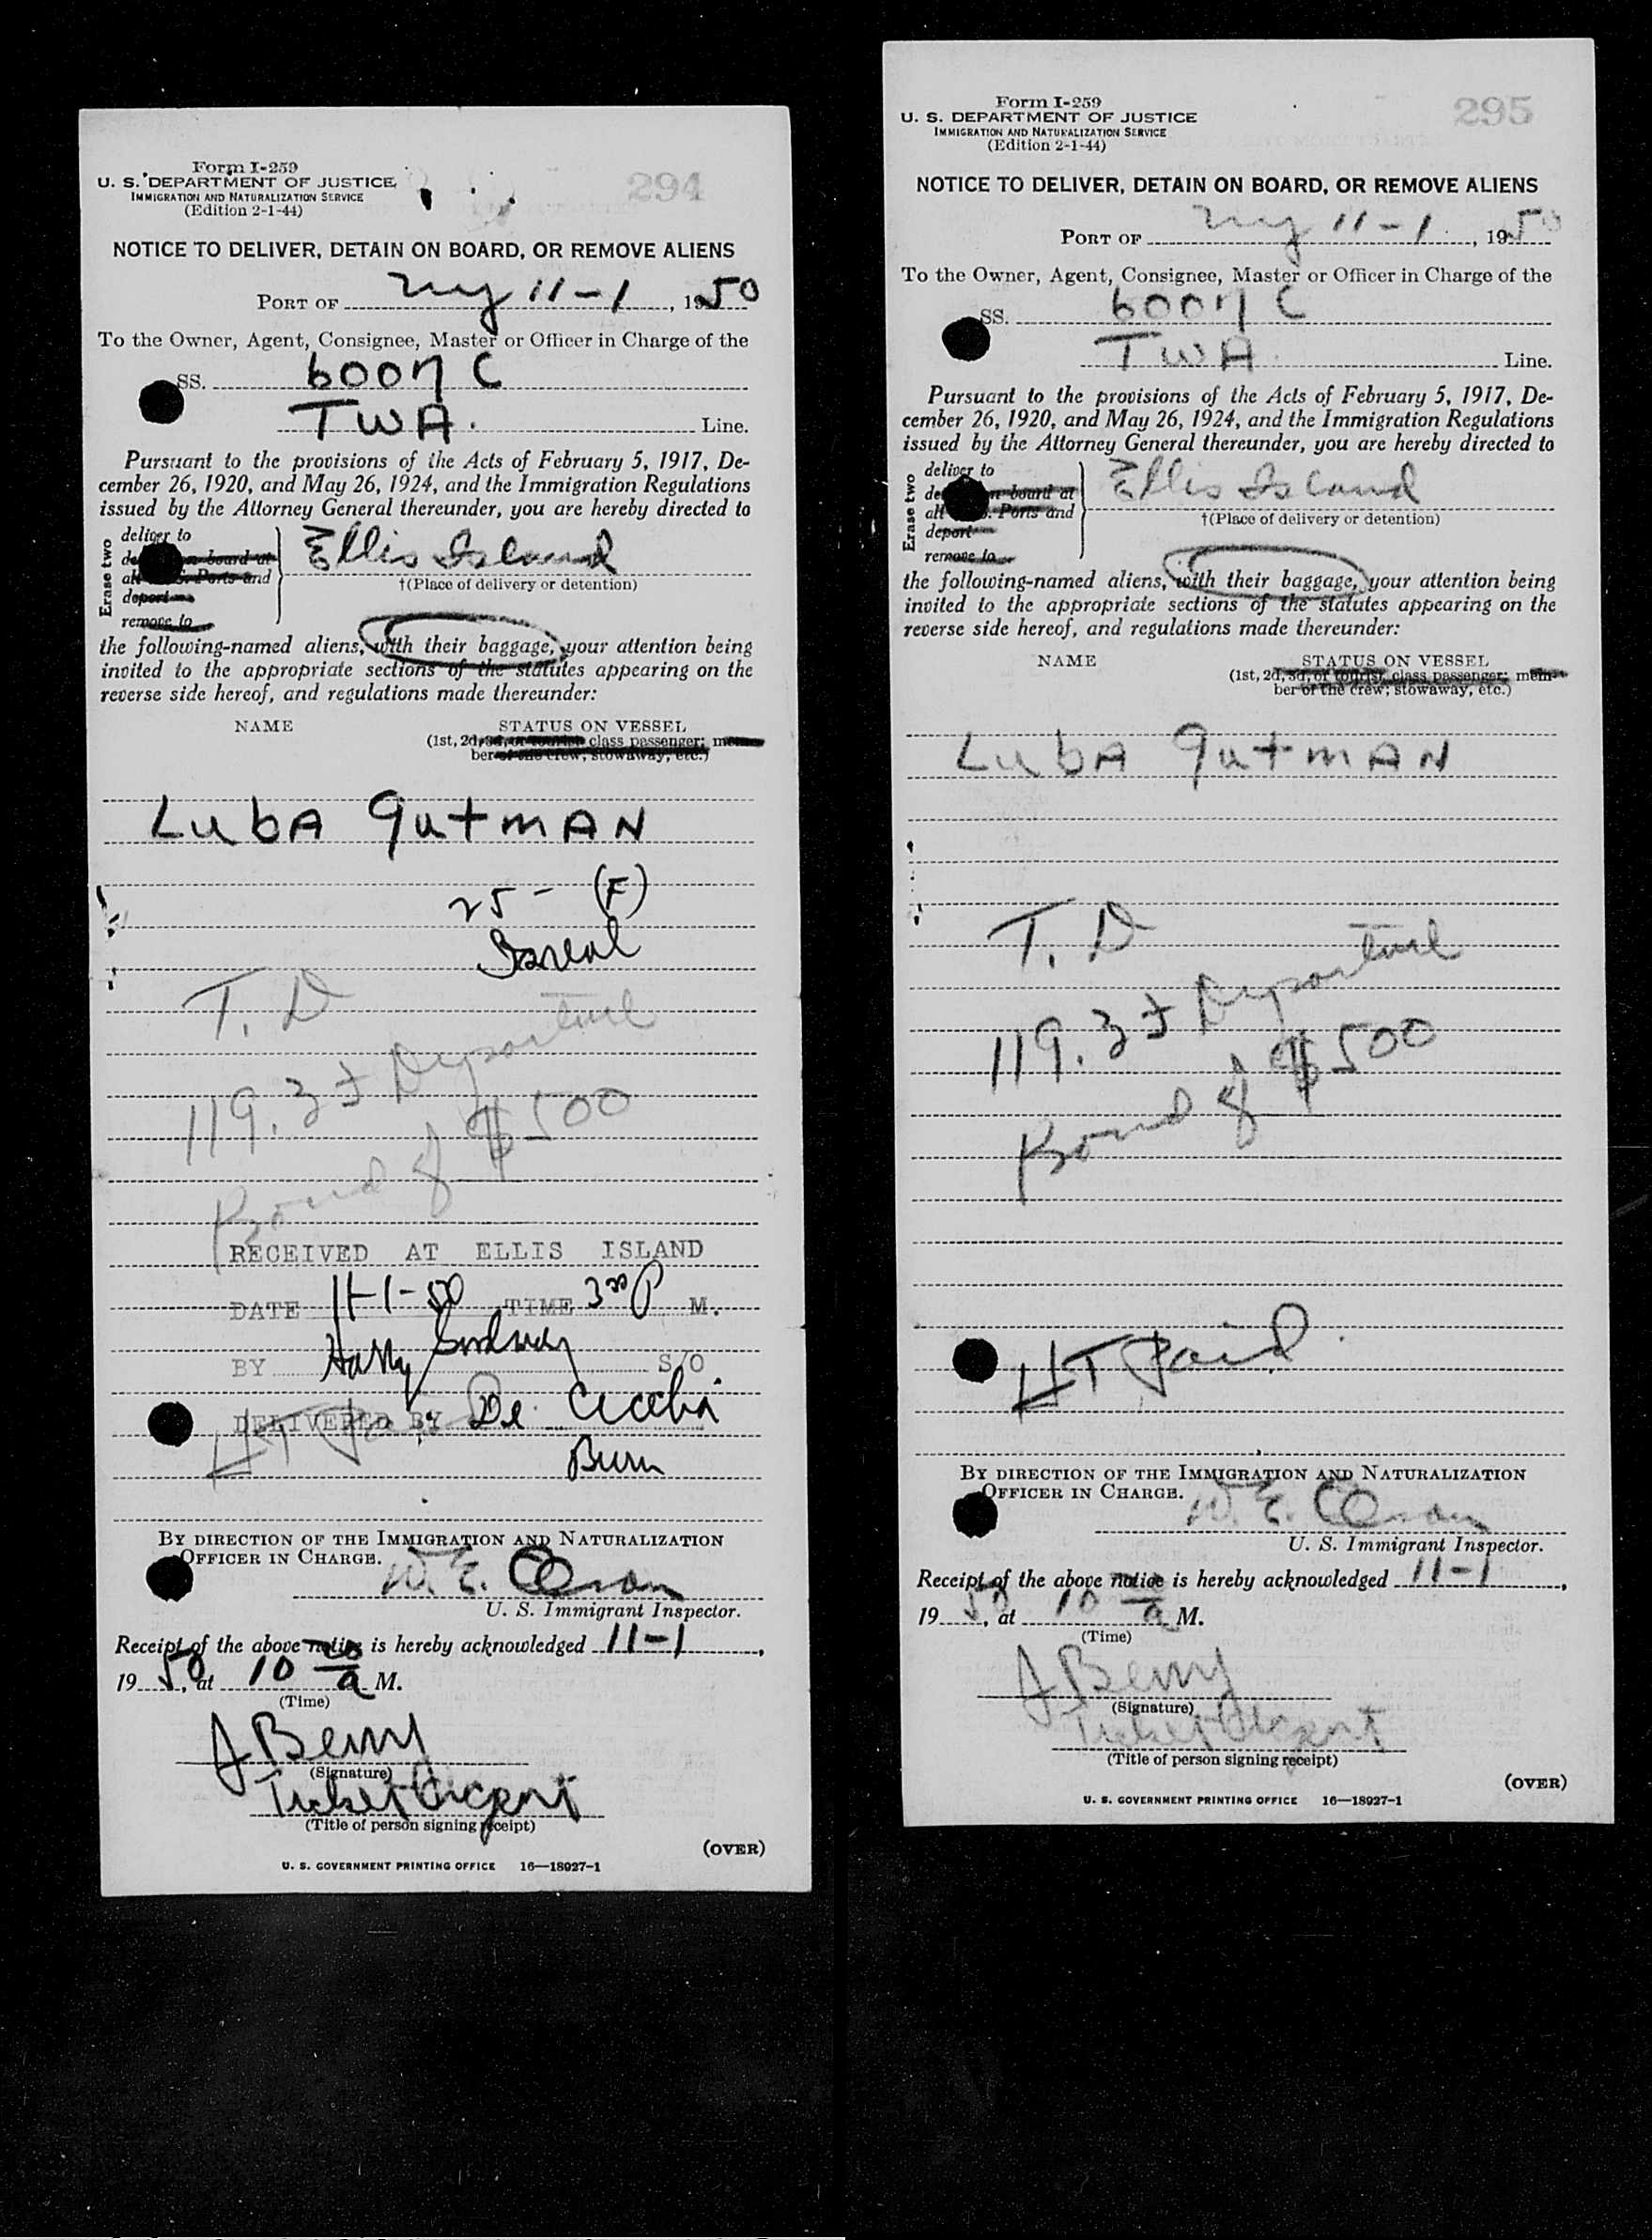 Form I-259
U. S. DEPARTMENT OF JUSTICE
IMMIGRATION AND NATURALIZATION SERVICE
(Edition 2-1-44)
294
NOTICE TO DELIVER, DETAIN ON BOARD, OR REMOVE ALIENS
PORT OF NY 11-1, 1950
To the Owner, Agent, Consignee, Master or Officer in Charge of the
SS. 6007 C
TWA. Line.
Pursuant to the provisions of the Acts of February 5, 1917, De-
cember 26, 1920, and May 26, 1924, and the Immigration Regulations
issued by the Attorney General thereunder, you are hereby directed to
Erase two
deliver to
on board at
all U.S. Ports and
deport
remove to
Ellis Island
†(Place of delivery or detention)
the following-named aliens, with their baggage, your attention being
invited to the appropriate sections of the statutes appearing on the
reverse side hereof, and regulations made thereunder:
NAME STATUS ON VESSEL
(1st, 2d, 3d, or tourist class passenger; mem-
ber of the crew; stowaway, etc.)
LubA gutmAN
25 - (F)
Isreal
T. D
119.3 + Departure
Bond of $500
RECEIVED AT ELLIS ISLAND
DATE 11-1-50 TIME 3 00 P M.
BY Harry S/O
DELIVERED BY De Cicelia
HT Paid
Burn
BY DIRECTION OF THE IMMIGRATION AND NATURALIZATION
OFFICER IN CHARGE.
W. E.
U. S. Immigrant Inspector.
Receipt of the above notice is hereby acknowledged 11-1,
1950, at 10 00 a M.
(Time)
J Berry
(Signature)
Ticket Agent
(Title of person signing receipt)
(OVER)
U. S. GOVERNMENT PRINTING OFFICE 16—18927-1
Form I-259
U. S. DEPARTMENT OF JUSTICE
IMMIGRATION AND NATURALIZATION SERVICE
(Edition 2-1-44)
295
NOTICE TO DELIVER, DETAIN ON BOARD, OR REMOVE ALIENS
PORT OF NY 11-1, 1950
To the Owner, Agent, Consignee, Master or Officer in Charge of the
SS. 6007 C
TWA Line.
Pursuant to the provisions of the Acts of February 5, 1917, De-
cember 26, 1920, and May 26, 1924, and the Immigration Regulations
issued by the Attorney General thereunder, you are hereby directed to
Erase two
deliver to
on board at
all U.S. Ports and
deport
remove to
Ellis Island
†(Place of delivery or detention)
the following-named aliens, with their baggage, your attention being
invited to the appropriate sections of the statutes appearing on the
reverse side hereof, and regulations made thereunder:
NAME STATUS ON VESSEL
(1st, 2d, 3d, or tourist class passenger; mem-
ber of the crew; stowaway, etc.)
LubA gutmAN
T. D
119.3 + Departure
Bond of $500
HT Paid
BY DIRECTION OF THE IMMIGRATION AND NATURALIZATION
OFFICER IN CHARGE.
W. E.
U. S. Immigrant Inspector.
Receipt of the above notice is hereby acknowledged 11-1,
1950, at 10 00 a M.
(Time)
J Berry
(Signature)
Ticket Agent
(Title of person signing receipt)
(OVER)
U. S. GOVERNMENT PRINTING OFFICE 16—18927-1